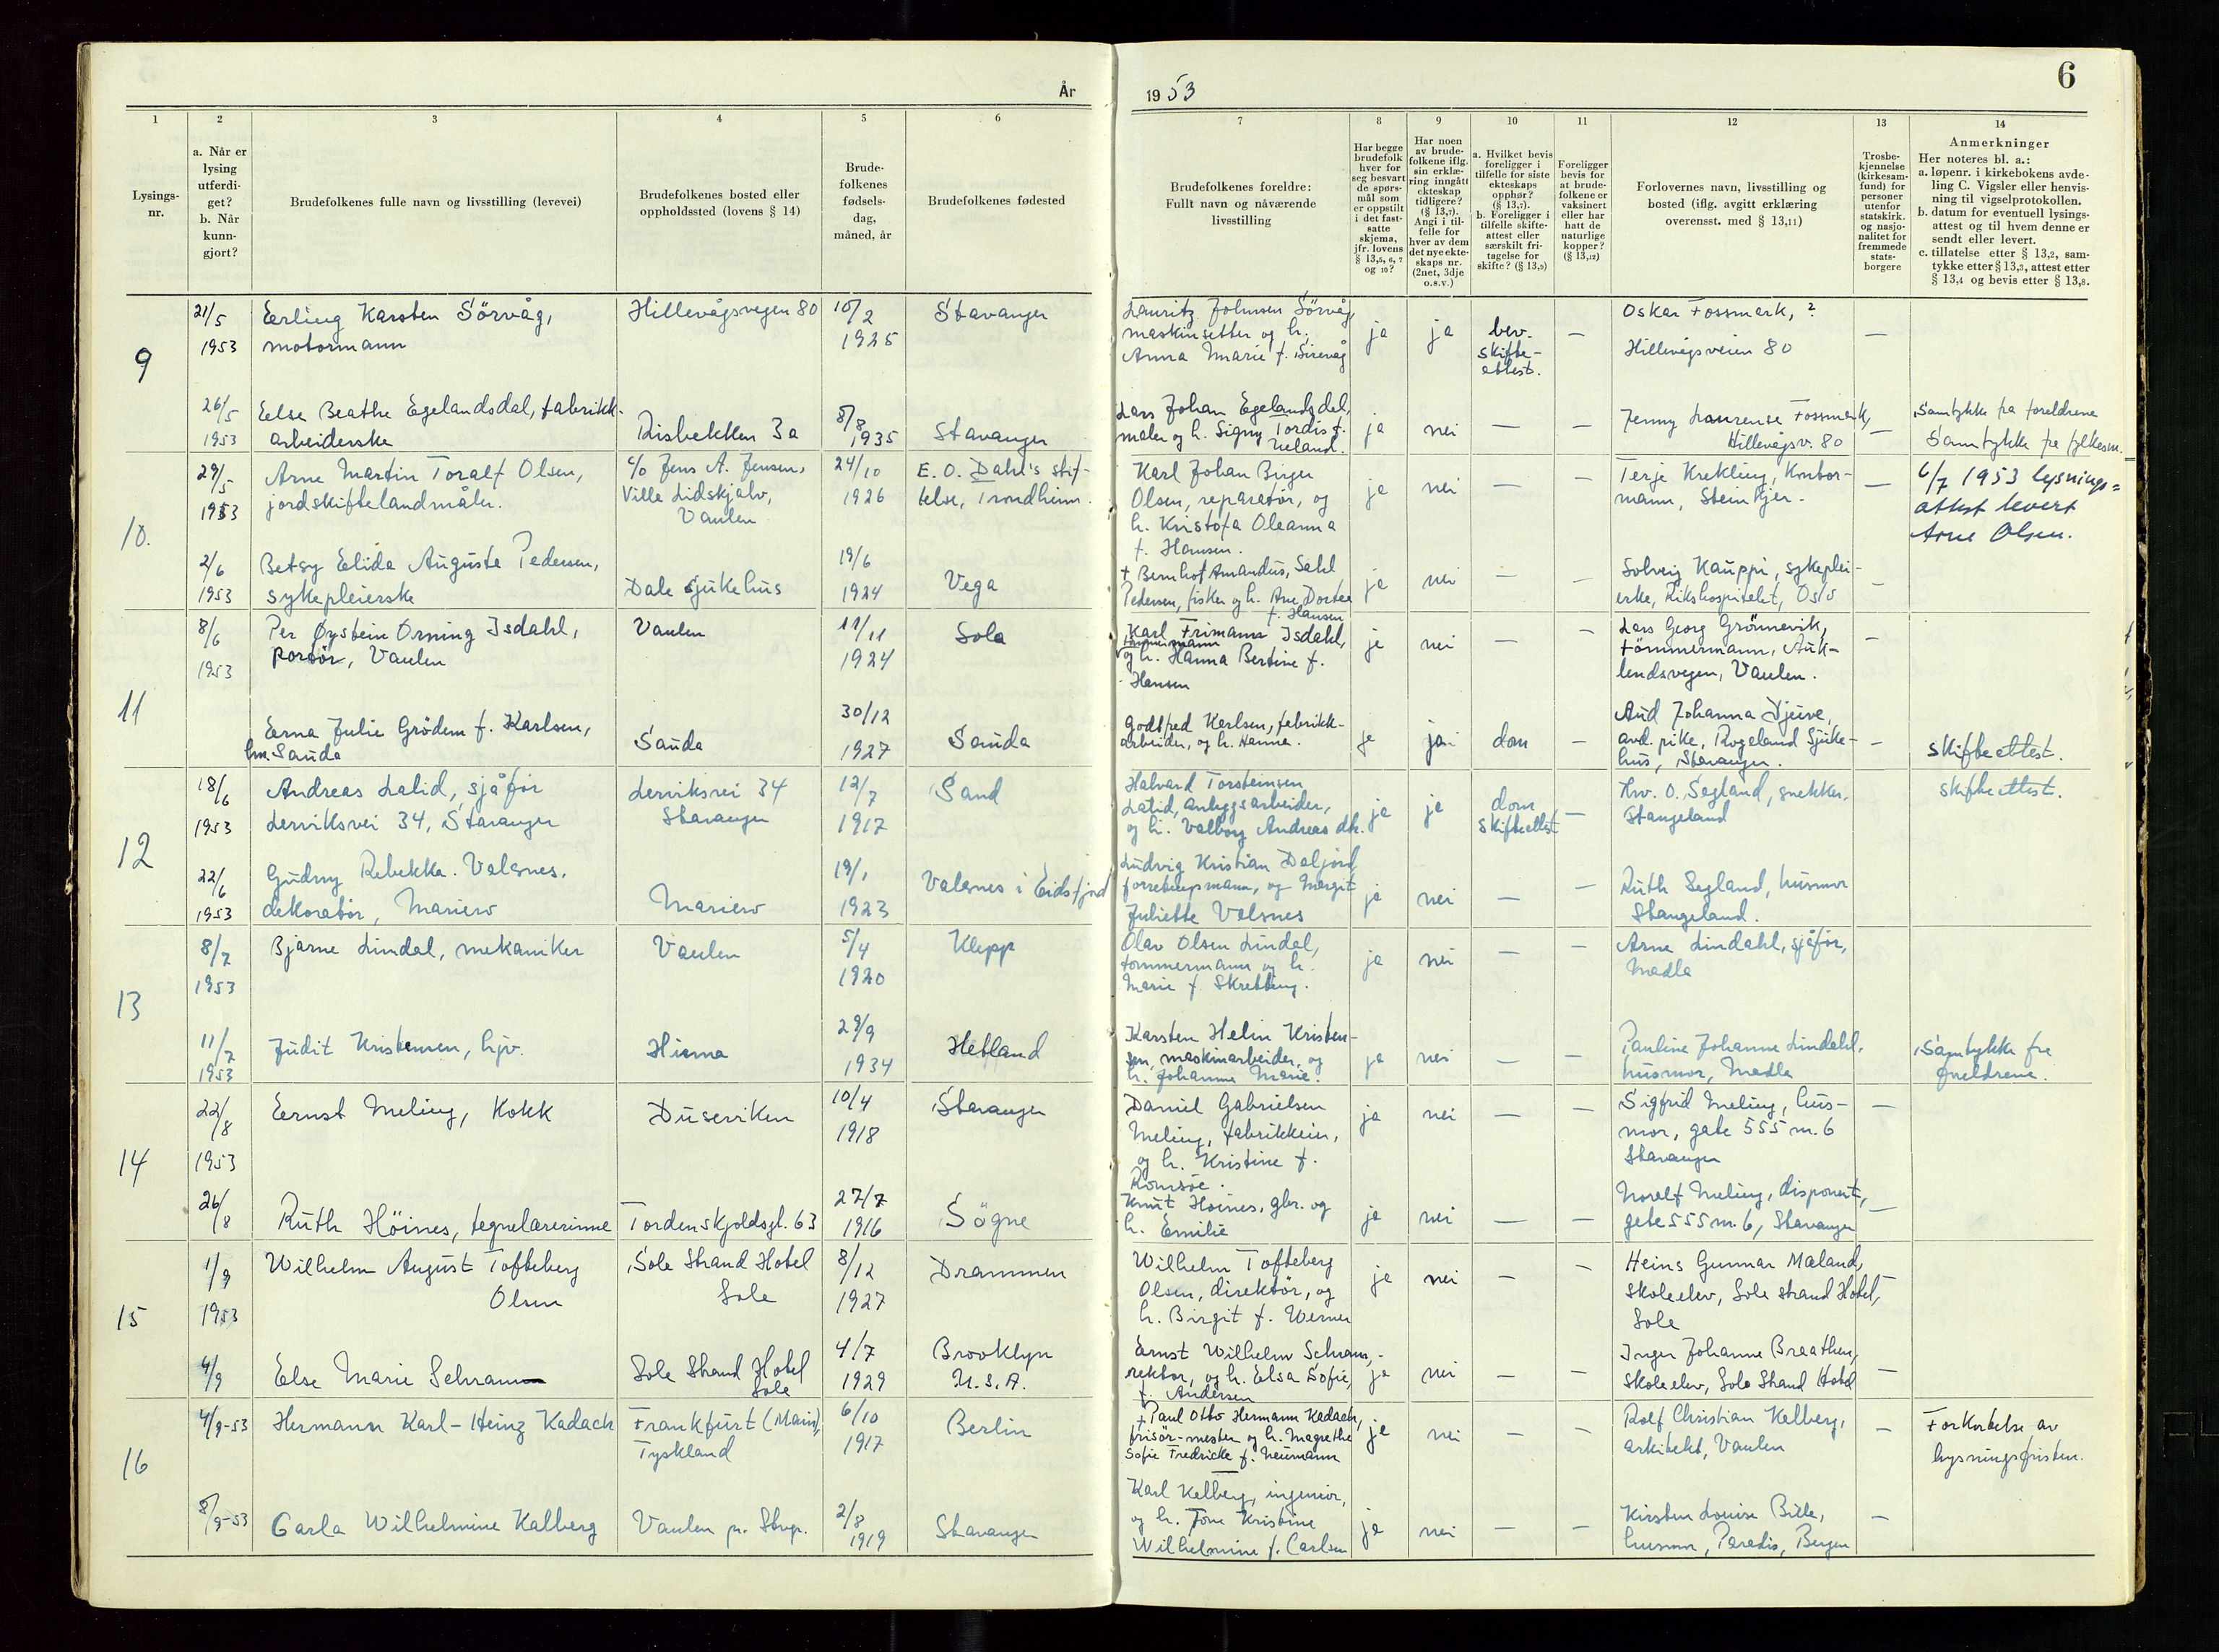 År
1953
6
1
2
3
4
5
6
7
8
9
10
11
12
13
14
Lysings-
nr.
a. Når er
lysing
utferdi-
get?
b. Når
kunn-
gjort?
Brudefolkenes fulle navn og livsstilling (levevei)
Brudefolkenes bosted eller
oppholdssted (lovens § 14)
Brude-
folkenes
fødsels-
dag,
måned, år
Brudefolkenes fødested
Brudefolkenes foreldre:
Fullt navn og nåværende
livsstilling
Har begge
brudefolk
hver for
seg besvart
de spørs-
mål som
er oppstilt
i det fast-
satte
skjema,
jfr. lovens
§ 13,5, 6, 7
og 10?
Har noen
av brude-
folkene iflg.
sin erklæ-
ring inngått
ekteskap
tidligere?
(§ 13,7).
Angi i til-
felle for
hver av dem
det nye ekte-
skaps nr.
(2net, 3dje
o.s.v.)
a. Hvilket bevis
foreligger i
tilfelle for siste
ekteskaps
opphør?
(§ 13,7).
b. Foreligger i
tilfelle skifte-
attest eller
særskilt fri-
tagelse for
skifte? (§ 13,9)
Foreligger
bevis for
at brude-
folkene er
vaksinert
eller har
hatt de
naturlige
kopper?
(§ 13,12)
Forlovernes navn, livsstilling og
bosted (iflg. avgitt erklæring
overensst. med § 13,11)
Trosbe-
kjennelse
(kirkesam-
fund) for
personer
utenfor
statskirk.
og nasjo-
nalitet for
fremmede
stats-
borgere
Anmerkninger
Her noteres bl. a.:
a. løpenr. i kirkebokens avde-
ling C. Vigsler eller henvis-
ning til vigselprotokollen.
b. datum for eventuell lysings-
attest og til hvem denne er
sendt eller levert.
c. tillatelse etter § 13,2, sam-
tykke etter § 13,3, attest etter
§ 13,4 og bevis etter § 13,8.
9
21/5
1953
Erling Karsten Sörvåg,
motormann
Hillevågsvegen 80
10/2
1925
Stavanger
Lauritz Johnsen Sörvåg,
maskinsetter og h.
Anna Marie f. Sirevåg
ja
ja
bev.
skifte-
attest.
—
Oskar Fossmark, ?
Hillevågsveien 80
—
26/5
1953
Else Beathe Egelandsdal, fabrikk-
arbeiderske
Risbekken 3a
8/8
1935
Stavanger
Lars Johan Egelandsdal,
maler og h. Signy Tordis f.
Ueland.
ja
nei
—
—
Jenny Laurense Fossmark,
Hillevågsv. 80
—
Samtykke fra foreldrene
Samtykke fra fylkesm.
10.
29/5
1953
Arne Martin Toralf Olsen,
jordskiftelandmåler.
c/o Jens A. Jensen,
Villa Lidskjalv,
Vaulen
24/10
1926
E. O. Dahl's stif-
telse, Trondheim.
Karl Johan Birger
Olsen, reparatør, og
h. Kristofa Oleanna
f. Hansen.
ja
nei
—
—
Terje Krekling, Kontor-
mann, Steinkjer.
—
6/7 1953 lysnings=
attest levert
Arne Olsen.
2/6
1953
Betsy Elida Auguste Pedersen,
sykepleierske
Dale sjukehus
19/6
1924
Vega
+ Bernhof Amandus, Sahl
Pedersen, fisker og h. Ane Dortea
f. Hansen
ja
nei
—
—
Solveig Kauppi, sykeplei-
erke, Rikshospitalet, Oslo
—
11
8/6
1953
Per Øystein Orning Isdahl,
portör, Vaulen
Vaulen
11/11
1924
Sola
Karl Frimann Isdahl,
tömmermann
og h. Hanna Bertine f.
Hansen
ja
nei
—
—
Lars Georg Grönnevik,
tömmermann, Auk-
lendsvegen, Vaulen.
—
Erna Julie Grödem f. Karlsen,
hm Sauda
Sauda
30/12
1927
Sauda
Godtfred Karlsen, fabrikk-
arbeider, og h. Hanna.
ja
ja
dom
—
Aud Johanna Djuve,
avd. pike, Rogaland Sjuke-
hus, Stavanger.
—
skifteattest.
12
18/6
1953
Andreas Lalid, sjåför
Lerviksvei 34, Stavanger
Lerviksvei 34
Stavanger
12/7
1917
Sand
Halvard Torsteinsen
Lalid, anleggsarbeider,
og h. Valborg Andreas dtr.
ja
ja
dom
skifteattest
—
Hrv. O. Segland, snekker,
Stangeland
skifteattest.
22/6
1953
Gudny Rebekka Valsnes.
dekoratör, Mariero
Mariero
19/1
1923
Valsnes i Eidsfjord
Ludvig Kristian Daljord,
forretningsmann, og Margit
Juliette Valsnes
ja
nei
—
—
Ruth Segland, husmor
Stangeland.
13
8/7
1953
Bjarne Lindal, mekaniker
Vaulen
5/4
1920
Klepp
Olav Olsen Lindal,
tommermann og h.
Marie f. Skretting.
ja
nei
—
—
Arne Lindahl, sjåför,
Madla
11/7
1953
Judit Kristensen, hjv.
Hinna
29/9
1934
Hetland
Karsten Helin Kristen-
sen, maskinarbeider, og
h. Johanne Marie.
ja
nei
—
—
Pauline Johanne Lindahl,
husmor, Madla
Samtykke fra
foreldrene.
14
22/8
1953
Ernst Meling, Kokk
Duserviken
10/4
1918
Stavanger
Daniel Gabrielsen
Meling, fabrikkeier,
og h. Kristine f.
Romsöe.
ja
nei
—
—
Sigfrid Meling, hus-
mor, gate 555 nr. 6
Stavanger
—
26/8
Ruth Höines, tegnelærerinne
Tordenskjoldsgt. 63
27/7
1916
Sögne
Knut Hoines, gbr. og
h. Emilie
ja
nei
—
—
Noralf Meling, disponent,
gate 555 nr. 6, Stavanger
—
15
1/9
1953
Wilhelm August Tofteberg
Olsen
Sola Strand Hotel
Sola
8/12
1927
Drammen
Wilhelm Tofteberg
Olsen, direktör, og
h. Birgit f. Werner
ja
nei
—
—
Heins Gunnar Mæland,
skoleelev, Sola strand Hotel,
Sola
—
4/9
Else Marie Schram
Sola Strand Hotel
Sola
4/7
1929
Brooklyn
U.S.A.
Ernst Wilhelm Schram,
rektor, og h. Elsa Sofie,
f. Andersen
ja
nei
—
—
Inger Johanne Braathen,
skoleelev, Sola Strand Hotel
—
16
4/9-53
Hermann Karl-Heinz Kadach
Frankfurt (Main),
Tyskland
6/10
1917
Berlin
+ Paul Otto Hermann Kadach,
frisör-mester og h. Magrethe
Sofie Fredricke f. Neumann
ja
nei
—
—
Rolf Christian Kalberg,
arkitekt, Vaulen
—
Forkortelse av
lysningsfristen.
8/9-53
Carla Wilhelmine Kalberg
Vaulen pr. Stvgr.
2/8
1919
Stavanger
Karl Kalberg, ingeniör,
og h. Tove Kristine
Wilhelmine f. Carlsen
ja
nei
—
—
Kirsten Louise Bille,
husmor, Paradis, Bergen
—